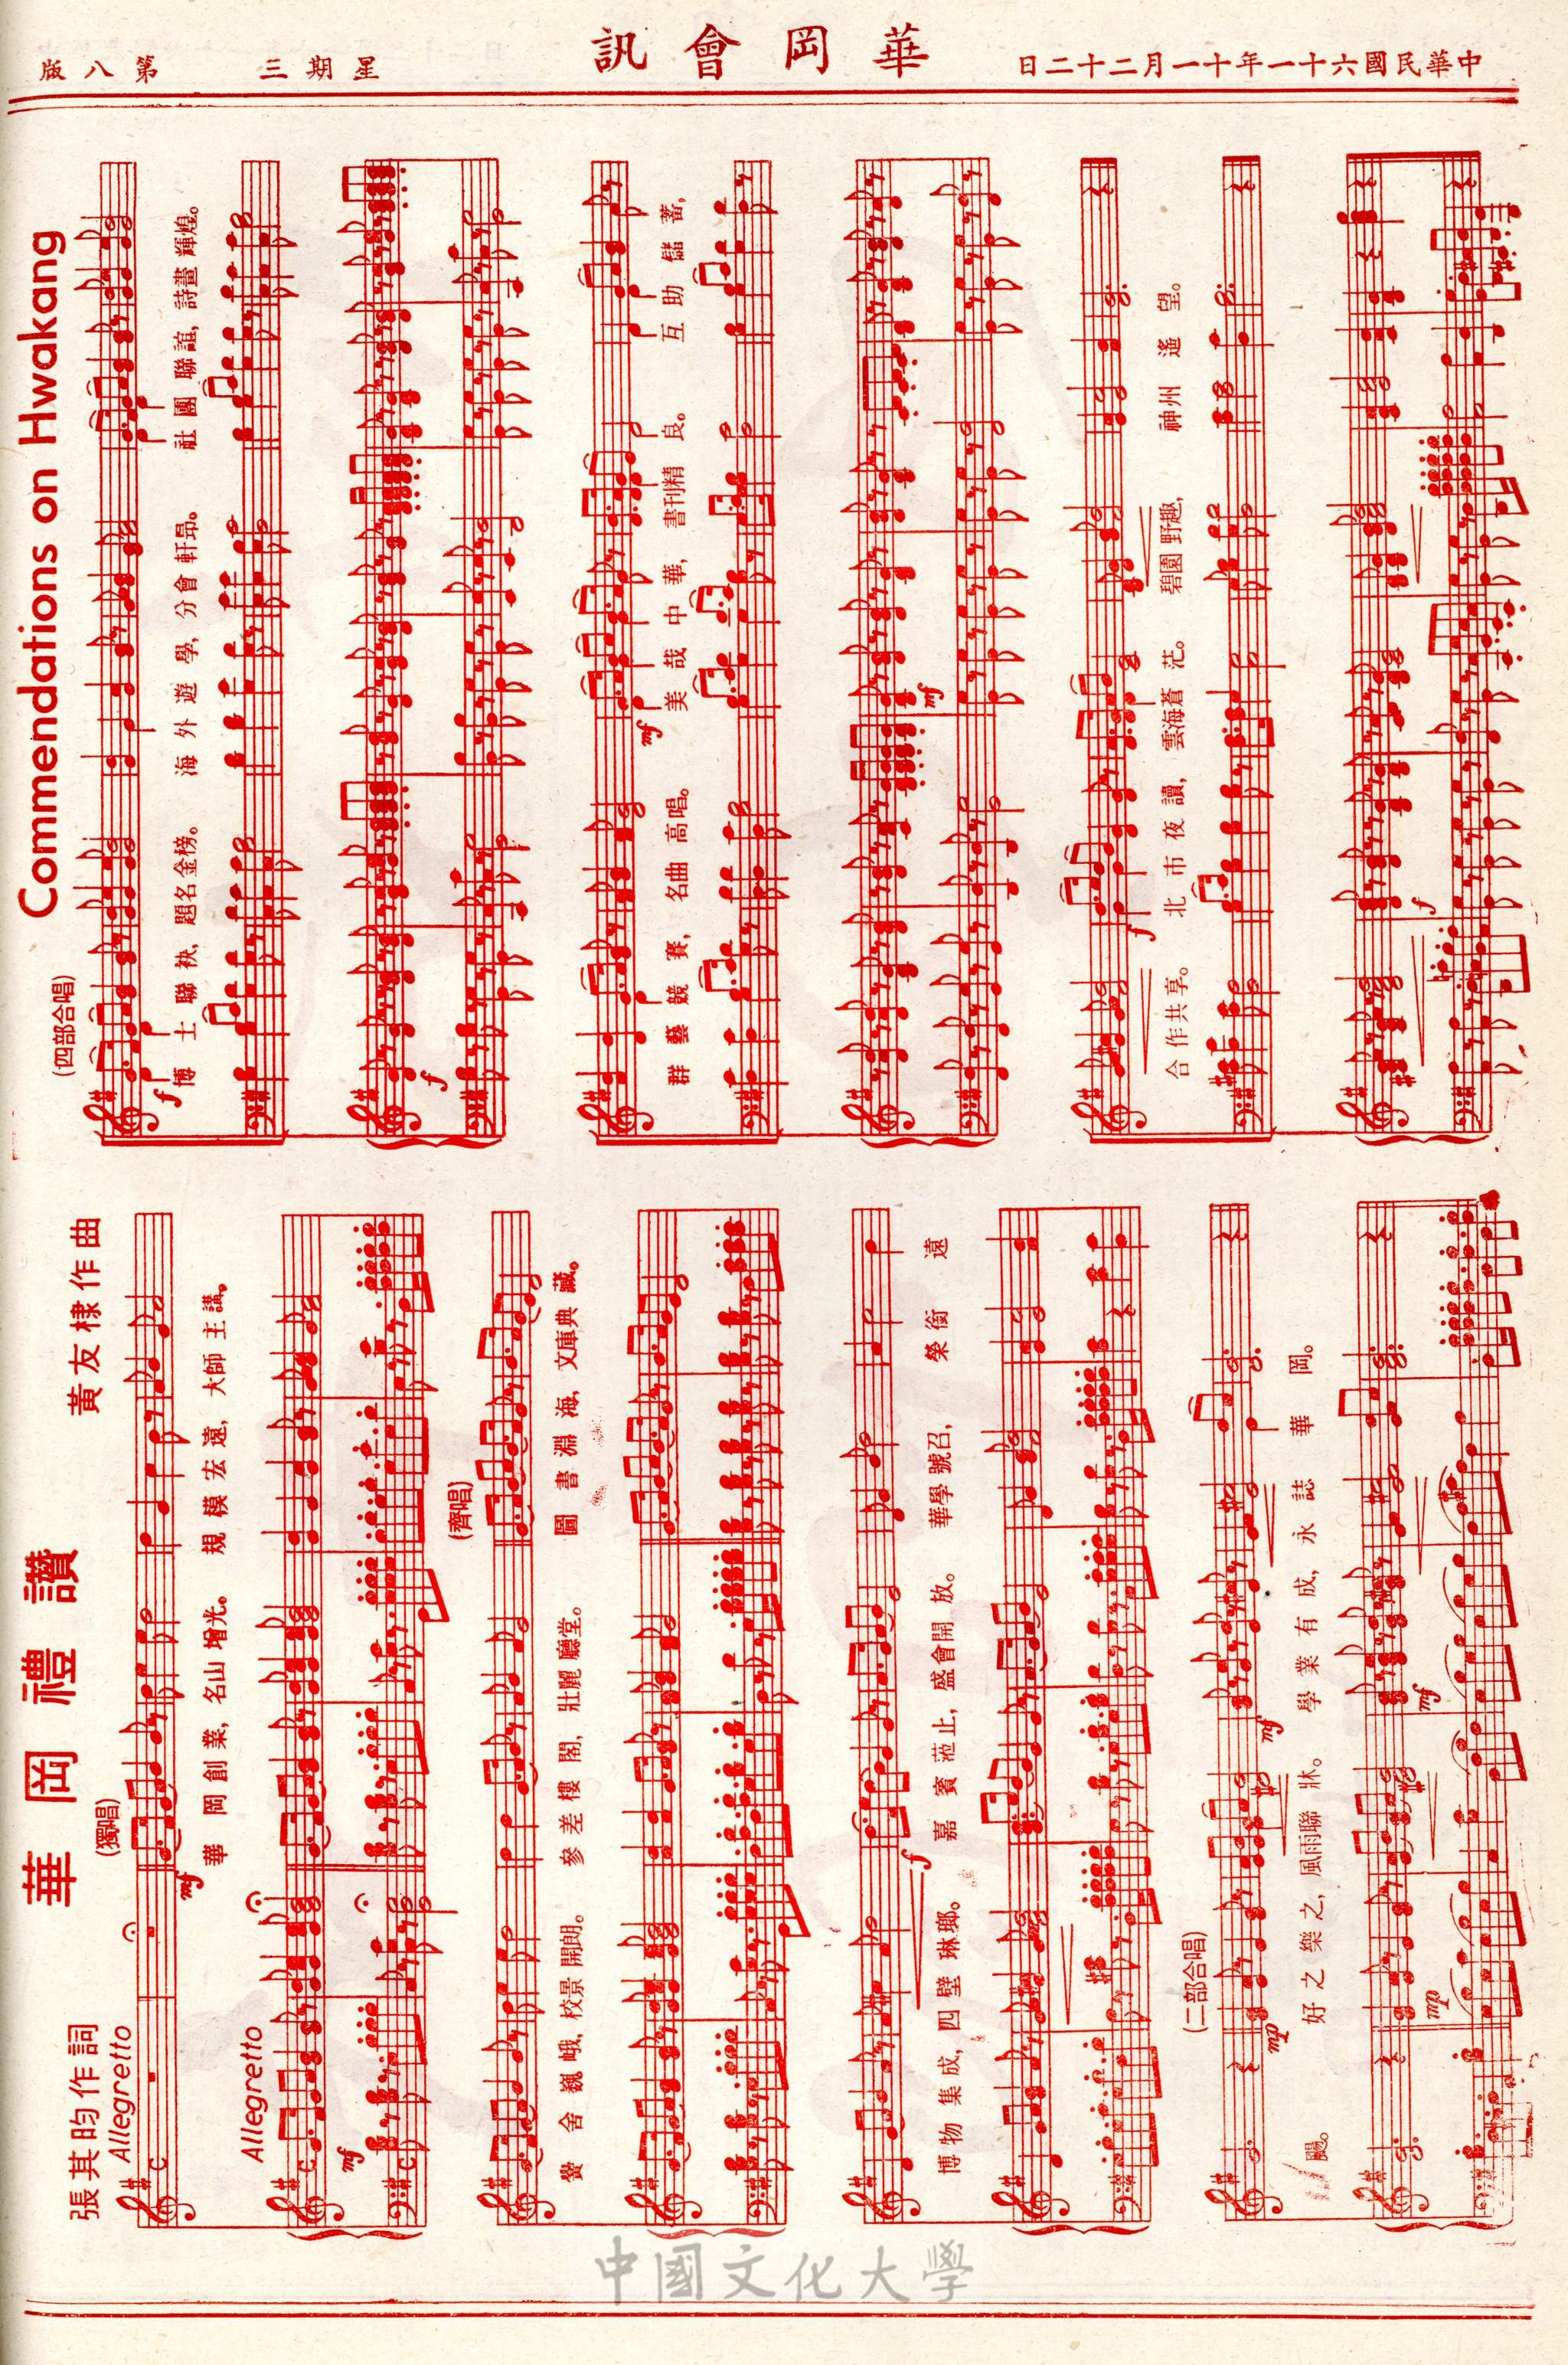 中華民國六十一年十一月二十二日
華岡會訊
星期三
第八版
華岡禮讚
Commendations on Hwakang
張其昀作詞
黃友棣作曲
Allegretto
(獨唱)
mf
華岡創業，名山增光。規模宏遠，大師主講。
Allegretto
mf
(齊唱)
黌舍巍峨，校景開朗。參差樓閣，壯麗廳堂。圖書淵海，文庫典藏。
博物集成，四壁琳瑯。嘉賓蒞止，盛會開放。華學號召，榮銜遠
f
(二部合唱)
颺。好之樂之，風雨聯牀。學業有成，永誌華岡。
mp
mf
mp
mf
(四部合唱)
f
博士聯袂，題名金榜。海外遊學，分會軒昂。社團聯誼，詩畫輝煌。
f
群藝競賽，名曲高唱。美哉中華，書刊精良。互助儲蓄，
mf
mf
合作共享。北市夜讀，雲海蒼茫。碧園野趣，神州遙望。
f
f
中國文化大學